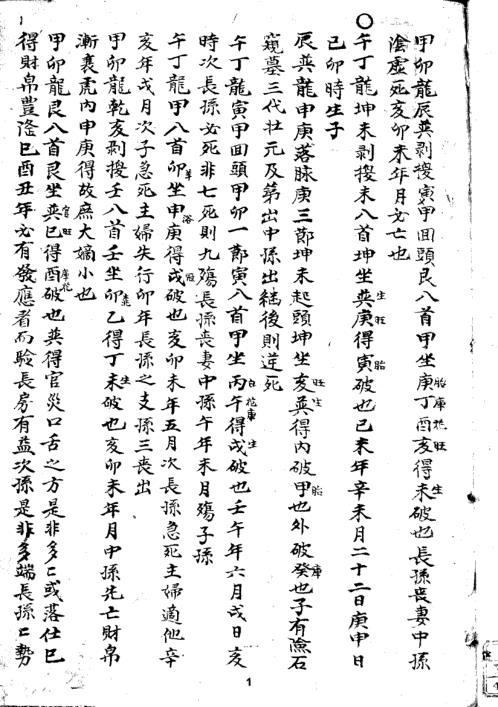 甲卯龍辰巽剥換寅甲回頭艮八首甲坐庚胎丁庫酉旺亥生得未破也長孫喪妻中孫
陰虛死亥卯未年月必亡也
○午丁龍坤未剥換未八首坤坐巽生庚旺得寅胎破也己未年辛未月二十二日庚申日
己卯時生子
辰巽龍申庚落脉庚三節坤未起頭坤坐亥旺巽生得內破甲胎也外破癸庫也子有險石
窺墓三代壯元及第出中孫出継後則逆死
午丁龍寅甲回頭甲卯一節寅八首甲坐丙午得戌破也壬午年六月戌日亥
時次長孫必死非七死則九殤長孫喪妻中孫午年未月殤子孫
午丁龍甲八首卯坐申庚浴得戌破也亥卯未年五月次長孫急死主婦適他辛
亥年戌月次子急死主婦失行卯年長孫之支孫三喪出
甲卯龍乾亥剥換壬八首壬坐卯乙得丁未破也亥卯未年月中孫先亡財帛
漸衰虎內申庚得故庶大嫡小也
甲卯龍艮八首艮坐巽官巳旺得酉破也巽得官災口舌之方是非多〻或落仕巳
得財帛豊隆巳酉丑年必有發應者而驗長房有益次孫是非多端長孫〻勢
1